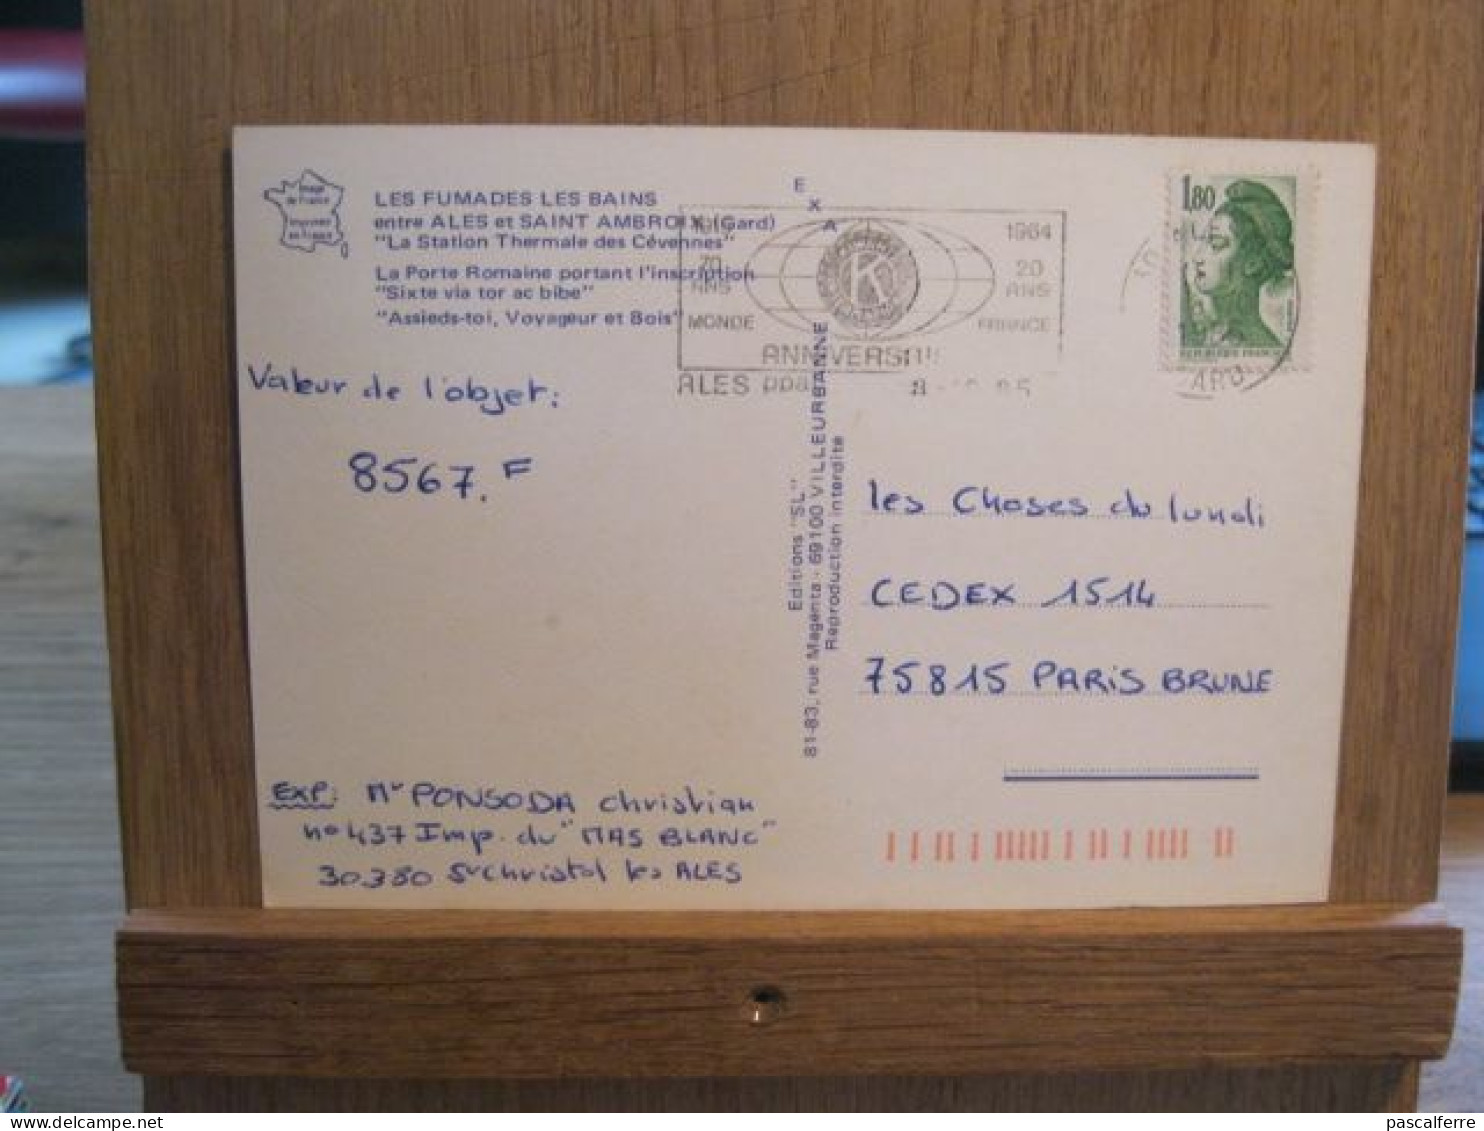 Image
de France
Imprimée
en France
LES FUMADES LES BAINS
entre ALES et SAINT AMBROIX (Gard)
"La Station Thermale des Cévennes"
La Porte Romaine portant l'inscription
"Sixte via tor ac bibe"
"Assieds-toi, Voyageur et Bois"
EXA
70
ANS
MONDE
K
1964
20
ANS
FRANCE
ANNIVERSAI
ALES ppal
1,80
REPUBLIQUE FRANCAISE
GARD
Valeur de l'objet:
8567.F
Editions "SL"
81-83, rue Magenta - 69100 VILLEURBANNE
Reproduction interdite
les Choses du lundi
CEDEX 1514
75815 PARIS BRUNE
EXP: Mr PONSODA christian
n° 437 Imp. du "MAS BLANC"
30.380 St Christol les ALES
pascalferre